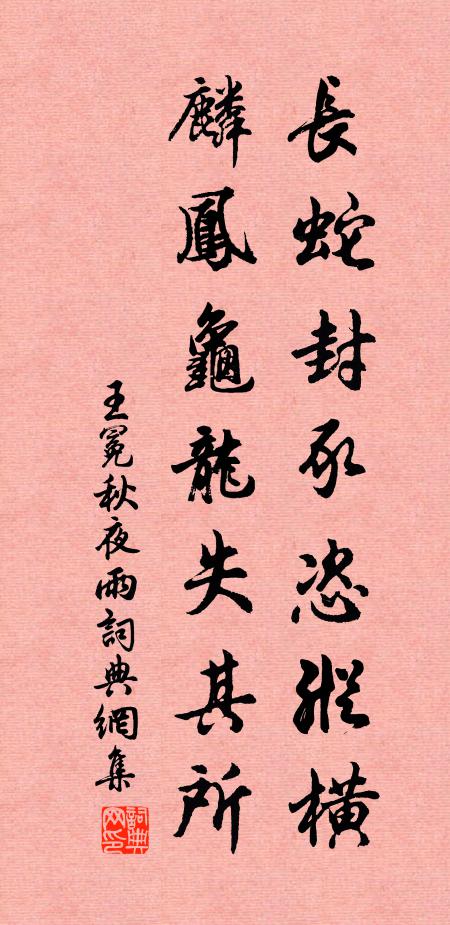 長蛇封豕恣縱橫
麟鳳龜龍失其所
王冕秋夜雨詞典網集
詞典
网印